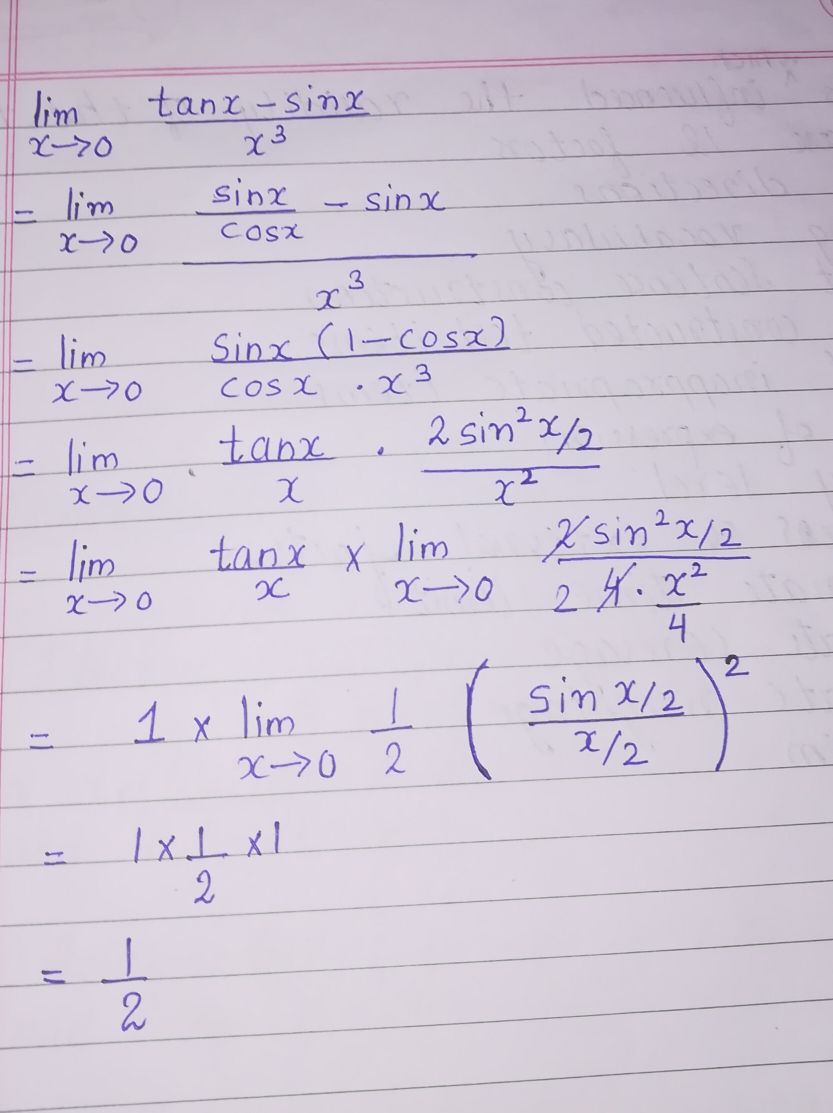 lim x→0 (tanx - sinx)/x³
= lim x→0 (sinx/cosx - sinx)/x³
= lim x→0 sinx (1-cosx)/(cosx · x³)
= lim x→0 tanx/x · 2sin²x/2/x²
= lim x→0 tanx/x × lim x→0 2sin²x/2/(2 4 · x²/4)
= 1 × lim x→0 1/2 (sin x/2/x/2)²
= 1 × 1/2 × 1
= 1/2